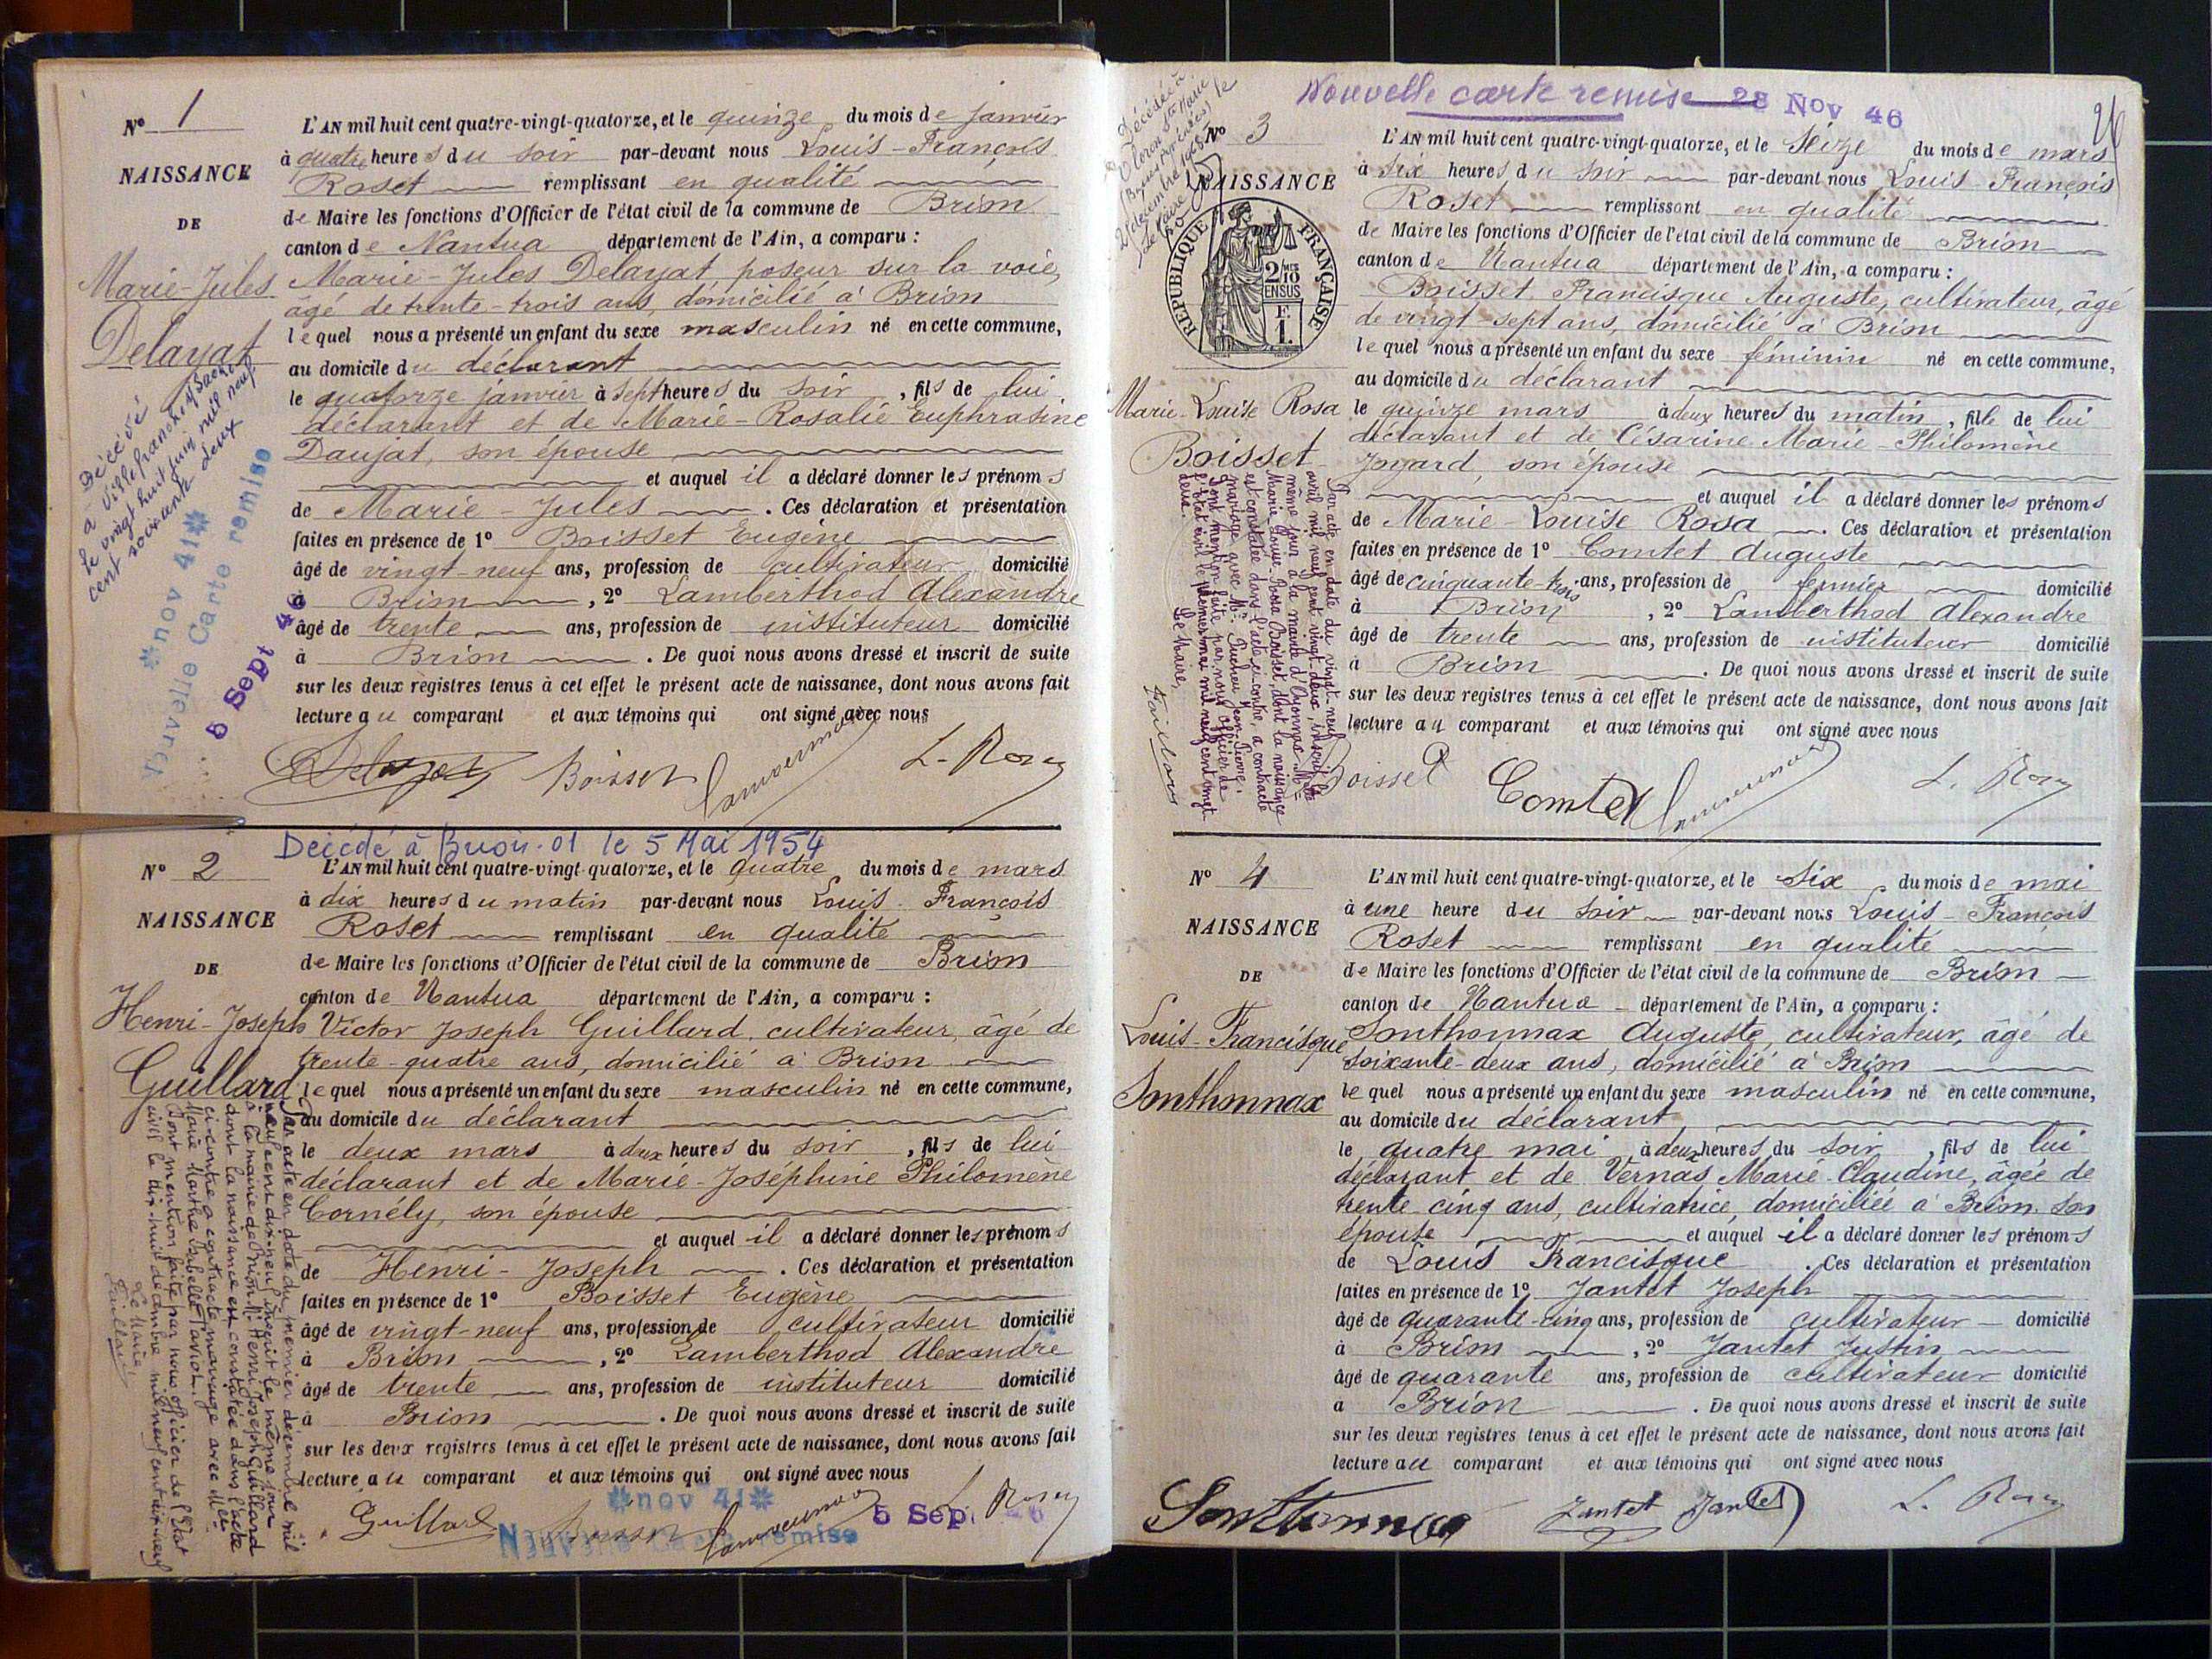 N° 1
NAISSANCE
DE
Marie-Jules
Delayat
Décédé
à Villefranche s/Saône
le vingt huit juin mil neuf
cent soixante deux
nov 41
Nouvelle Carte remise
5 Sept 46
L'AN mil huit cent quatre-vingt-quatorze, et le quinze du mois de janvier
à quatre heures du soir par-devant nous Louis-François
Roset remplissant en qualité
de Maire les fonctions d'Officier de l'état civil de la commune de Brion
canton de Nantua département de l'Ain, a comparu :
Marie-Jules Delayat poseur sur la voie,
âgé de trente-trois ans, domicilié à Brion
lequel nous a présenté un enfant du sexe masculin né en cette commune,
au domicile du déclarant
le quatorze janvier à sept heures du soir, fils de lui
déclarant et de Marie-Rosalie Euphrasine
Daujat, son épouse
et auquel il a déclaré donner les prénoms
de Marie-Jules. Ces déclaration et présentation
faites en présence de 1° Boisset Eugène
âgé de vingt-neuf ans, profession de cultivateur domicilié
à Brion, 2° Lamberthod Alexandre
âgé de trente ans, profession de instituteur domicilié
à Brion. De quoi nous avons dressé et inscrit de suite
sur les deux registres tenus à cet effet le présent acte de naissance, dont nous avons fait
lecture au comparant et aux témoins qui ont signé avec nous
Delayat Boisset
Décédé à Brion. 01 le 5 Mai 1954
N° 2
NAISSANCE
DE
Henri-Joseph
Guillard
Par acte en date du premier décembre mil
neuf cent dix-neuf inscrit le même jour
à la mairie de Brion Mr Henri Joseph Guillard
dont la naissance est constatée dans l'acte
ci contre a contracté mariage avec Mlle
Marie Marthe Isabelle
Dont mention faite par nous officier de l'Etat
civil le dix-huit décembre mil neuf cent dix-neuf
Le Maire,
Guillard
L'AN mil huit cent quatre-vingt-quatorze, et le quatre du mois de mars
à dix heures du matin par-devant nous Louis-François
Roset remplissant en qualité
de Maire les fonctions d'Officier de l'état civil de la commune de Brion
canton de Nantua département de l'Ain, a comparu :
Victor Joseph Guillard, cultivateur, âgé de
trente-quatre ans, domicilié à Brion
lequel nous a présenté un enfant du sexe masculin né en cette commune,
au domicile du déclarant
le deux mars à deux heures du soir, fils de lui
déclarant et de Marie-Joséphine Philomène
Cornély, son épouse
et auquel il a déclaré donner les prénoms
de Henri-Joseph. Ces déclaration et présentation
faites en présence de 1° Boisset Eugène
âgé de vingt-neuf ans, profession de cultivateur domicilié
à Brion, 2° Lamberthod Alexandre
âgé de trente ans, profession de instituteur domicilié
à Brion. De quoi nous avons dressé et inscrit de suite
sur les deux registres tenus à cet effet le présent acte de naissance, dont nous avons fait
lecture au comparant et aux témoins qui ont signé avec nous
nov 41
Guillard Boisset 5 Sep
Nouvelle Carte remise
Nouvelle carte remise 28 Nov 46
26
Décédée à
Oloron Ste Marie
(Basses-Pyrénées) le
décembre 1968
Le Maire
N° 3
NAISSANCE
RÉPUBLIQUE FRANÇAISE
2/10
EN SUS
1 F.
Marie-Louise Rosa
Boisset
Par acte en date du vingt-neuf
avril mil neuf cent vingt-deux, inscrit le
même jour à la mairie d'Oyonnax Mlle
Marie-Louise-Rosa Boisset, dont la naissance
est constatée dans l'acte ci contre, a contracté
mariage avec Mr Jean-Pierre.
Dont mention faite par nous officier de
l'état civil le mai mil neuf cent vingt
deux.
Le Maire,
Guillard
L'AN mil huit cent quatre-vingt-quatorze, et le Seize du mois de mars
à six heures du soir par-devant nous Louis-François
Roset remplissant en qualité
de Maire les fonctions d'Officier de l'état civil de la commune de Brion
canton de Nantua département de l'Ain, a comparu :
Boisset Francisque Auguste, cultivateur, âgé
de vingt-sept ans, domicilié à Brion
lequel nous a présenté un enfant du sexe féminin né en cette commune,
au domicile du déclarant
le quinze mars à deux heures du matin, fille de lui
déclarant et de Césarine Marie-Philomène
Joyard, son épouse
et auquel il a déclaré donner les prénoms
de Marie-Louise Rosa. Ces déclaration et présentation
faites en présence de 1° Comtet Auguste
âgé de cinquante-trois ans, profession de fermier domicilié
à Brion, 2° Lamberthod Alexandre
âgé de trente ans, profession de instituteur domicilié
à Brion. De quoi nous avons dressé et inscrit de suite
sur les deux registres tenus à cet effet le présent acte de naissance, dont nous avons fait
lecture au comparant et aux témoins qui ont signé avec nous
Boisset Comtet
N° 4
NAISSANCE
DE
Louis-Francisque
Sonthonnax
L'AN mil huit cent quatre-vingt-quatorze, et le Six du mois de mai
à une heure du soir par-devant nous Louis-François
Roset remplissant en qualité
de Maire les fonctions d'Officier de l'état civil de la commune de Brion
canton de Nantua département de l'Ain, a comparu :
Sonthonnax Auguste, cultivateur, âgé de
soixante-deux ans, domicilié à Brion
lequel nous a présenté un enfant du sexe masculin né en cette commune,
au domicile du déclarant
le quatre mai à deux heures du soir, fils de lui
déclarant et de Vernas Marie-Claudine, âgée de
trente cinq ans, cultivatrice, domiciliée à Brion son
épouse et auquel il a déclaré donner les prénoms
de Louis Francisque. Ces déclaration et présentation
faites en présence de 1° Jantet Joseph
âgé de quarante-cinq ans, profession de cultivateur domicilié
à Brion, 2° Jantet Justin
âgé de quarante ans, profession de cultivateur domicilié
à Brion. De quoi nous avons dressé et inscrit de suite
sur les deux registres tenus à cet effet le présent acte de naissance, dont nous avons fait
lecture au comparant et aux témoins qui ont signé avec nous
Sonthonnax Jantet Jantet